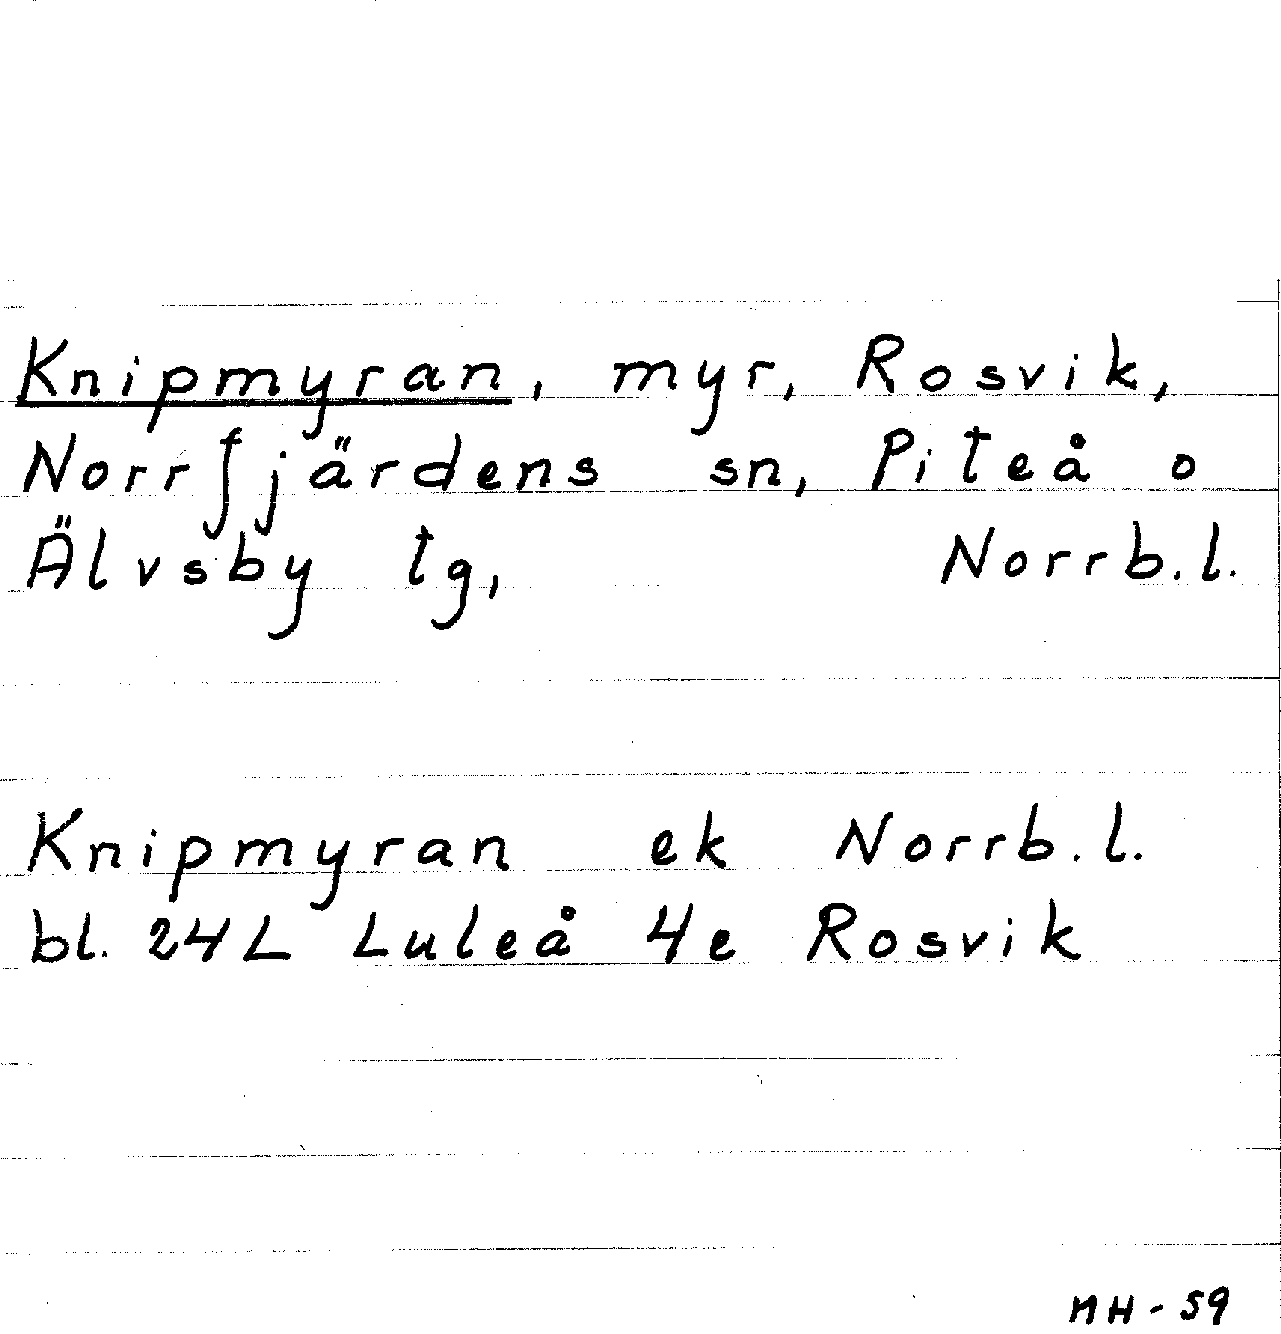 Knipmyran, myr, Rosvik,
Norrfjärdens sn, Piteå o
Älvsby tg, Norrb.l.
Knipmyran ek Norrb.l.
bl. 24L Luleå 4e Rosvik
NH-59